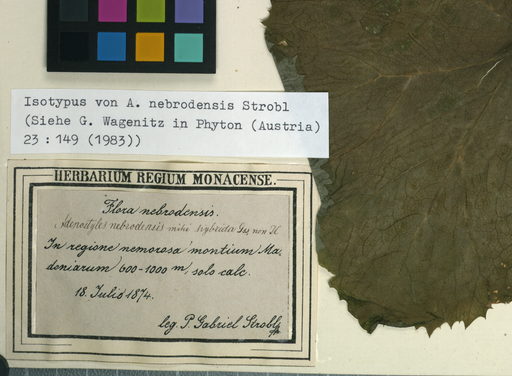 Isotypus von A. nebrodensis Strobl
(Siehe G. Wagenitz in Phyton (Austria)
23 : 149 (1983))
HERBARIUM REGIUM MONACENSE.
Flora nebrodensis.
Adenostyles nebrodensis mihi hybrida Guss non
In regione nemorosa montium Ma-
doniarum 600-1000 m, solo calc.
18. Julio 1874.
leg. P. Gabriel Strobl